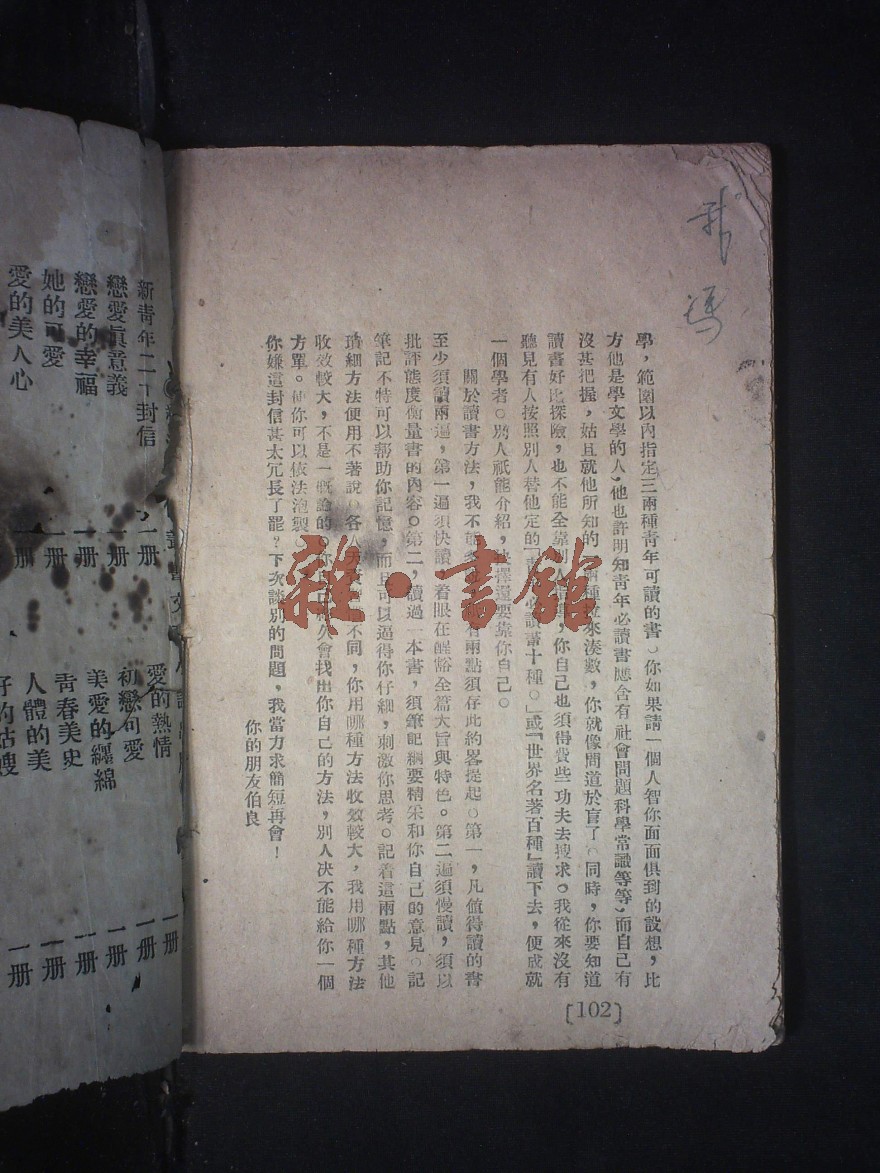 學，範圍以內指定三兩種靑年可讀的書。你如果請一個人智你面面俱到的設想，比
方他是學文學的人，他也許明知靑年必讀書應含有社會問題科學常識等等，而自己有
沒甚把握，姑且就他所知的兩種拉來湊數，你就像問道於盲了。同時，你要知道
讀書好比探險，也不能全靠別人，你自己也須得費些功夫去搜求。我從來沒有
聽見有人按照別人替他定的「必讀書十種。」或「世界名著百種」讀下去，便成就
一個學者。別人祇能介紹，擇還要靠你自己。
關於讀書方法，我不能有兩點須存此約畧提起。第一，凡值得讀的書
至少須讀兩遍，第一遍須快讀，着眼在醒豁全篇大旨與特色。第二遍須慢讀，須以
批評態度衡量書的內容。第二，讀過一本書，須筆記綱要精采和你自己的意見。記
筆記不特可以幫助你記憶，而且可以逼得你仔細，刺激你思考。記着這兩點，其他
瑣細方法便用不著說。各人不同，你用哪種方法收效較大，我用哪種方法
收效較大，不是一概論的。你久會找出你自己的方法，別人決不能給你一個
方單。使你可以依法泡製。
你嫌這封信甚太冗長了罷？下次談別的問題，我當力求簡短再會！
你的朋友伯良
[102]
雜·書館
新靑年二十封信 一册
戀愛眞意義 一册
戀愛的幸福 一册
她的可愛 一册
愛的美人心 一册
愛的熱情 一册
初戀可愛 一册
美愛的纏綿 一册
靑春美史 一册
人體的美 一册